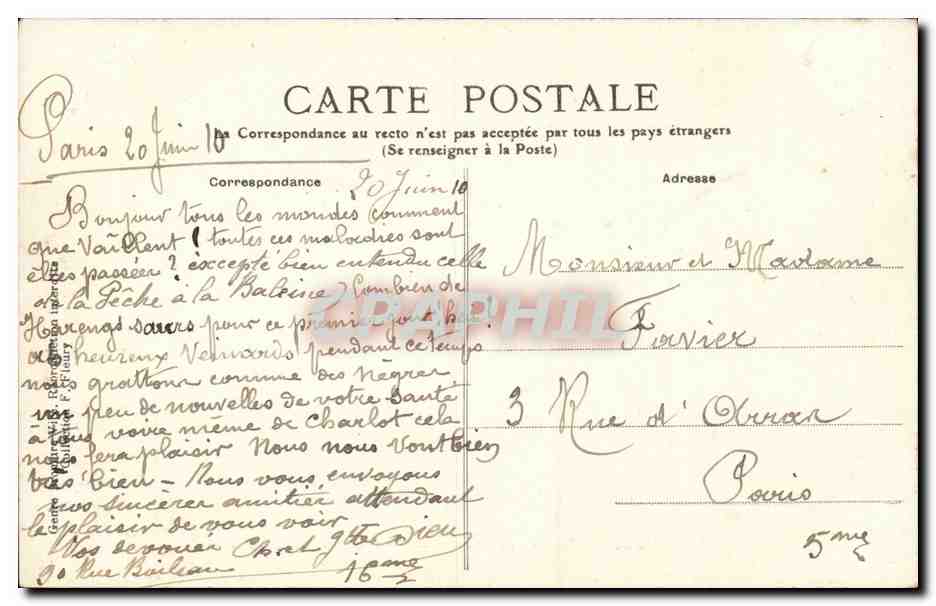 CARTE POSTALE
La Correspondance au recto n'est pas acceptée par tous les pays étrangers
(Se renseigner à la Poste)
Paris 20 Juin 10
Correspondance
20 Juin 10
Bonjour tous les mondes comment
que Vaillent ! toutes ces maladies sont
elles passées ? excepté bien entendu celle
de la Pêche à la Baleine, Combien de
Harengs saurs pour ce premier jour, hein
heureux Veinards, pendant ce temps
nous grattons comme des Nègres
un peu de nouvelles de votre santé
à tous voire même de Charlot cela
nous fera plaisir Nous nous Vont bien
très bien – Nous vous envoyons
nos sincères amitiés attendant
le plaisir de vous voir
Vos dévoués
90 Rue Boileau
16me
Adresse
Monsieur et Madame
Favier
3 Rue d'Arras
Paris
5me
Collection F. Fleury
CARAPHIL